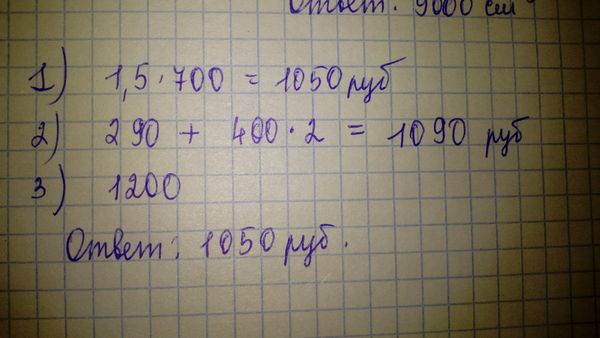 Ответ: 9000 см
1) 1,5 · 700 = 1050 руб
2) 290 + 400 · 2 = 1090 руб
3) 1200
Ответ: 1050 руб.